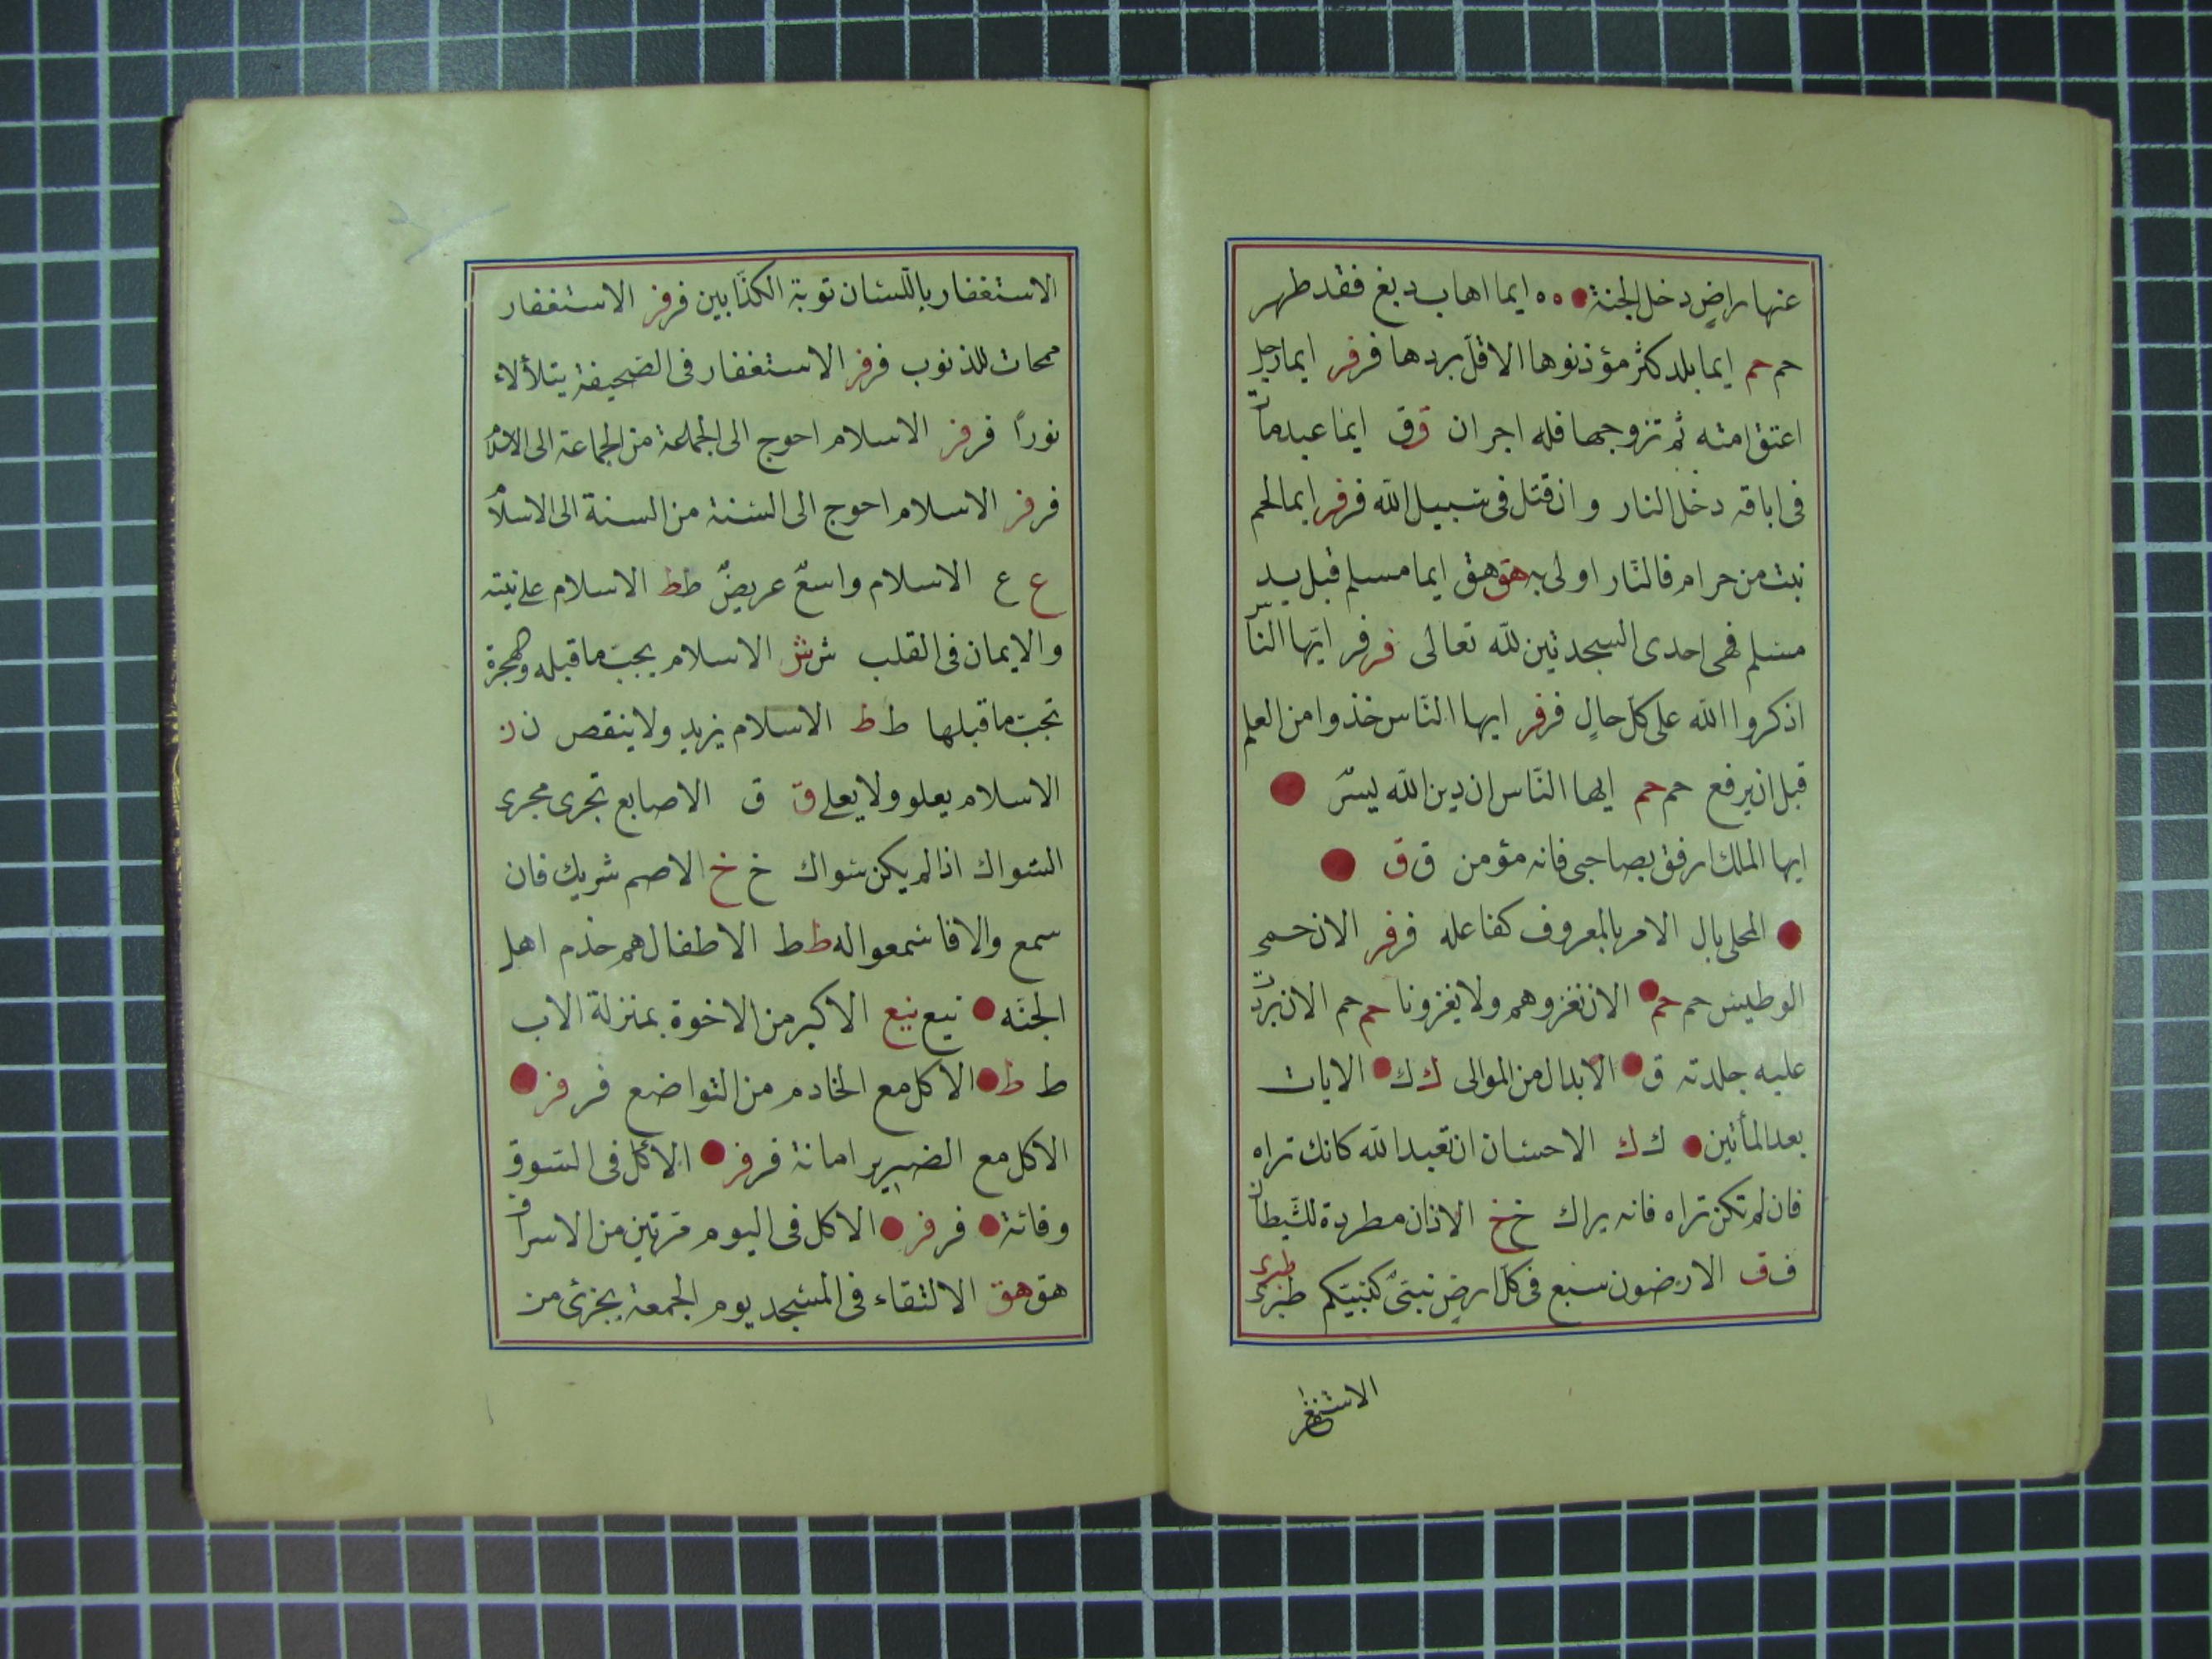 عنها راضٍ دخل الجنة ه ه ايما اهاب دبغ فقد طهر
حم حم ايما بلد كثر مؤذنوها الا قلّ بردها فر فر ايما رجل
اعتق امته ثم تزوجها فله اجران ق ق ايما عبد مات
فى اباقه دخل النار وان قتل فى سبيل الله فر فر ايما لحم
نبت من حرام فالنار اولى به هق هق ايما مسلم قبل يد
مسلم فهى احدى السجدتين لله تعالى فر فر ايّها الناس
اذكروا الله على كل حالٍ فر فر ايها النّاس خذوا من العلم
قبل ان يرفع حم حم ايها النّاس ان دين الله يسرٌ
ايها الملك ارفق بصاحبى فانه مؤمن ق ق
المحلى بال الامر بالمعروف كفاعله فر فر الان حمى
الوطيس حم حم الان نغزوهم ولا يغزونا حم حم الان بردت
عليه جلدته ق الابدال من الموالى ك ك الايات
بعد المأتين ك ك الاحسان ان تعبد الله كانك تراه
فان لم تكن تراه فانه يراك خ خ الاذان مطردة للشّيطان
ف ق الارضون سبع فى كل ارضٍ نبىّ كنبيّكم طبرى طبرى
الاستغفار باللّسان توبة الكذّابين فر فر الاستغفار
ممحات للذنوب فر فر الاستغفار فى الصّحيفة يتلألاء
نوراً فر فر الاسلام احوج الى الجماعة من الجماعة الى الاسلام
فر فر الاسلام احوج الى السّنة من السنة الى الاسلام
ع ع الاسلام واسعٌ عريضٌ ط ط الاسلام علانيته
والايمان فى القلب ش ش الاسلام يجبّ ما قبله والهجرة
تجبّ ما قبلها ط ط الاسلام يزيد ولا ينقص ن ن
الاسلام يعلو ولا يعلى ق ق الاصابع تجرى مجرى
السّواك اذا لم يكن سواك خ خ الاصم شريك فان
سمع والا فاسمعوا له ط ط الاطفال هم خدم اهل
الجنّه نيع نيع الاكبر من الاخوة بمنزلة الاب
ط ط الاكل مع الخادم من التواضع فر فر
الاكل مع الضرير امانة فر فر الاكل فى السّوق
وقائة فر فر الاكل فى اليوم مرّتين من الاسراف
هق هق الالتقاء فى المسجد يوم الجمعة يجزئ من